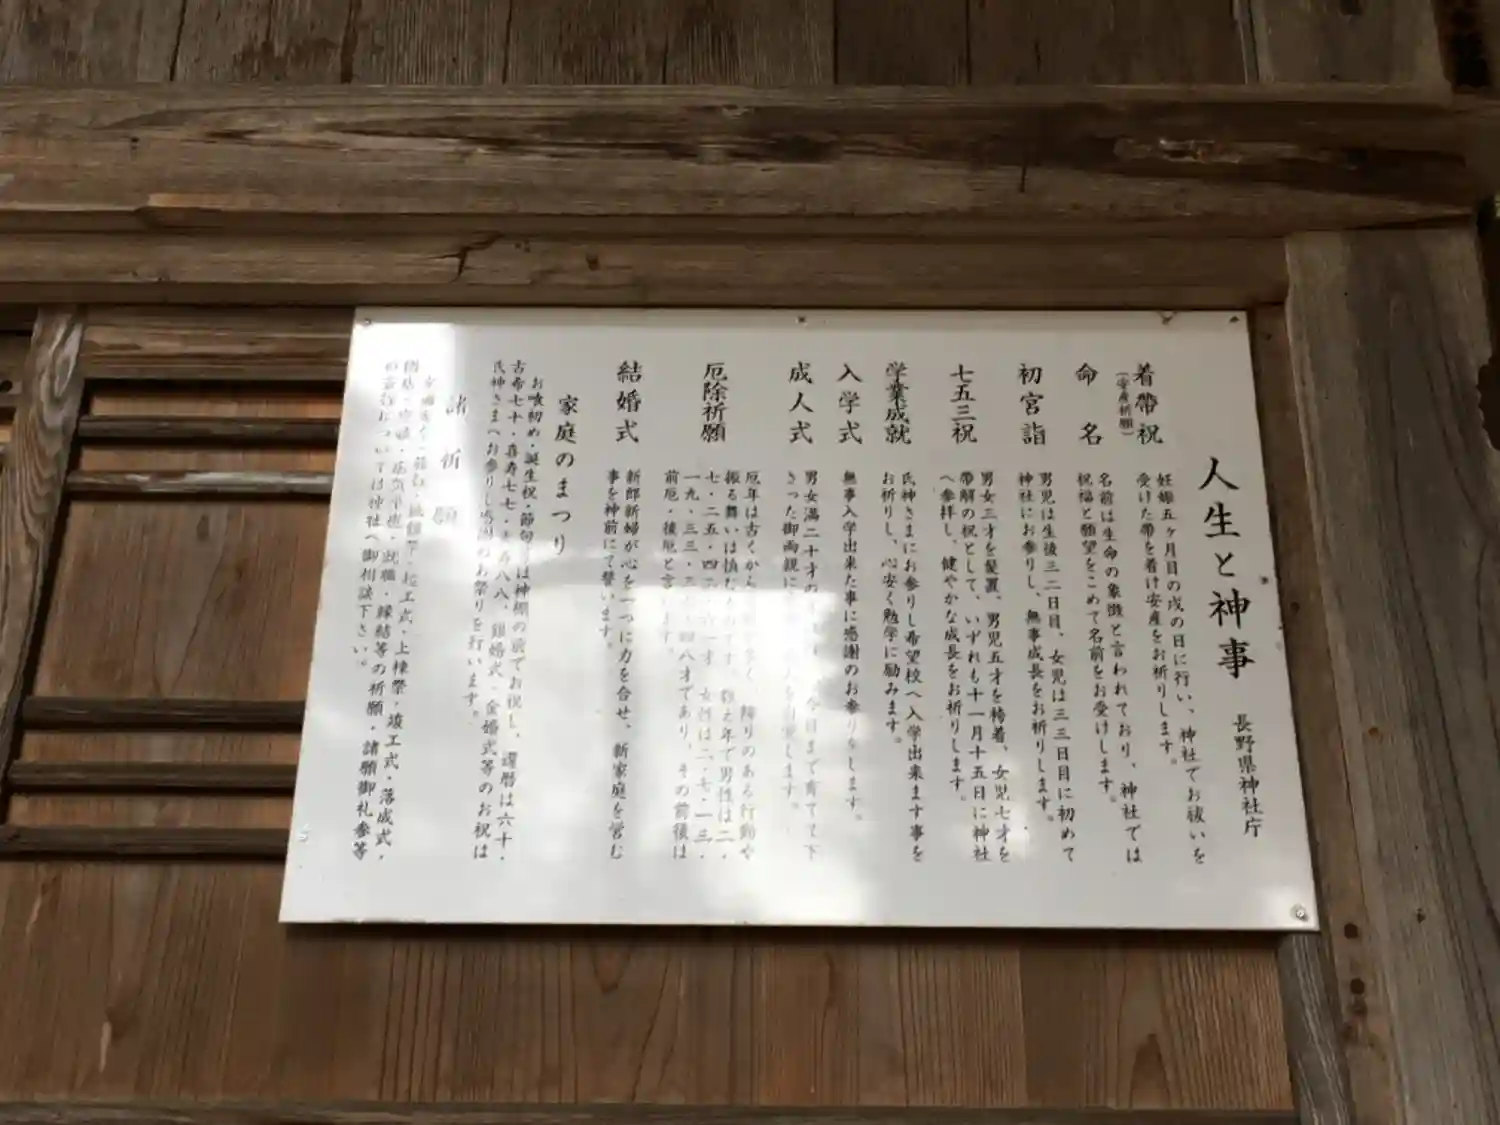 人生と神事 長野県神社庁
着帯祝
(安産祈願)
妊娠五ヶ月目の戌の日に行い、神社でお祓いを
受けた帯を着け安産をお祈りします。
命名
名前は生命の象徴と言われており、神社では
祝福と願望をこめて名前をお受けします。
初宮詣
男児は生後三二日目、女児は三三日目に初めて
神社にお参りし、無事成長をお祈りします。
七五三祝
男女三才を髪置、男児五才を袴着、女児七才を
帯解の祝として、いずれも十一月十五日に神社
へ参拝し、健やかな成長をお祈りします。
学業成就
氏神さまにお参りし希望校へ入学出来ます事を
お祈りし、心安く勉学に励みます。
入学式
無事入学出来た事に感謝のお参りをします。
成人式
男女満二十才の 今日まで育てて下
さった御両親に します。
厄除祈願
厄年は古くから 障りのある行動や
振る舞いは慎む です。数え年で男性は二・
七・二五・四二・六一才、女性は二・七・一三・
一九・三三・三七・四八才であり、その前後は
前厄・後厄と言います。
結婚式
新郎新婦が心を一つに力を合せ、新家庭を営む
事を神前にて誓います。
家庭のまつり
お喰初め・誕生祝・節句には神棚の前でお祝し、還暦は六十・
古希七十・喜寿七七・ 八八、銀婚式・金婚式等のお祝は
氏神さまへお参りし感謝のお祭りを行います。
諸祈願
起工式・上棟祭・竣工式・落成式・
就職・縁結等の祈願・諸願御礼参等
については神社へ御相談下さい。